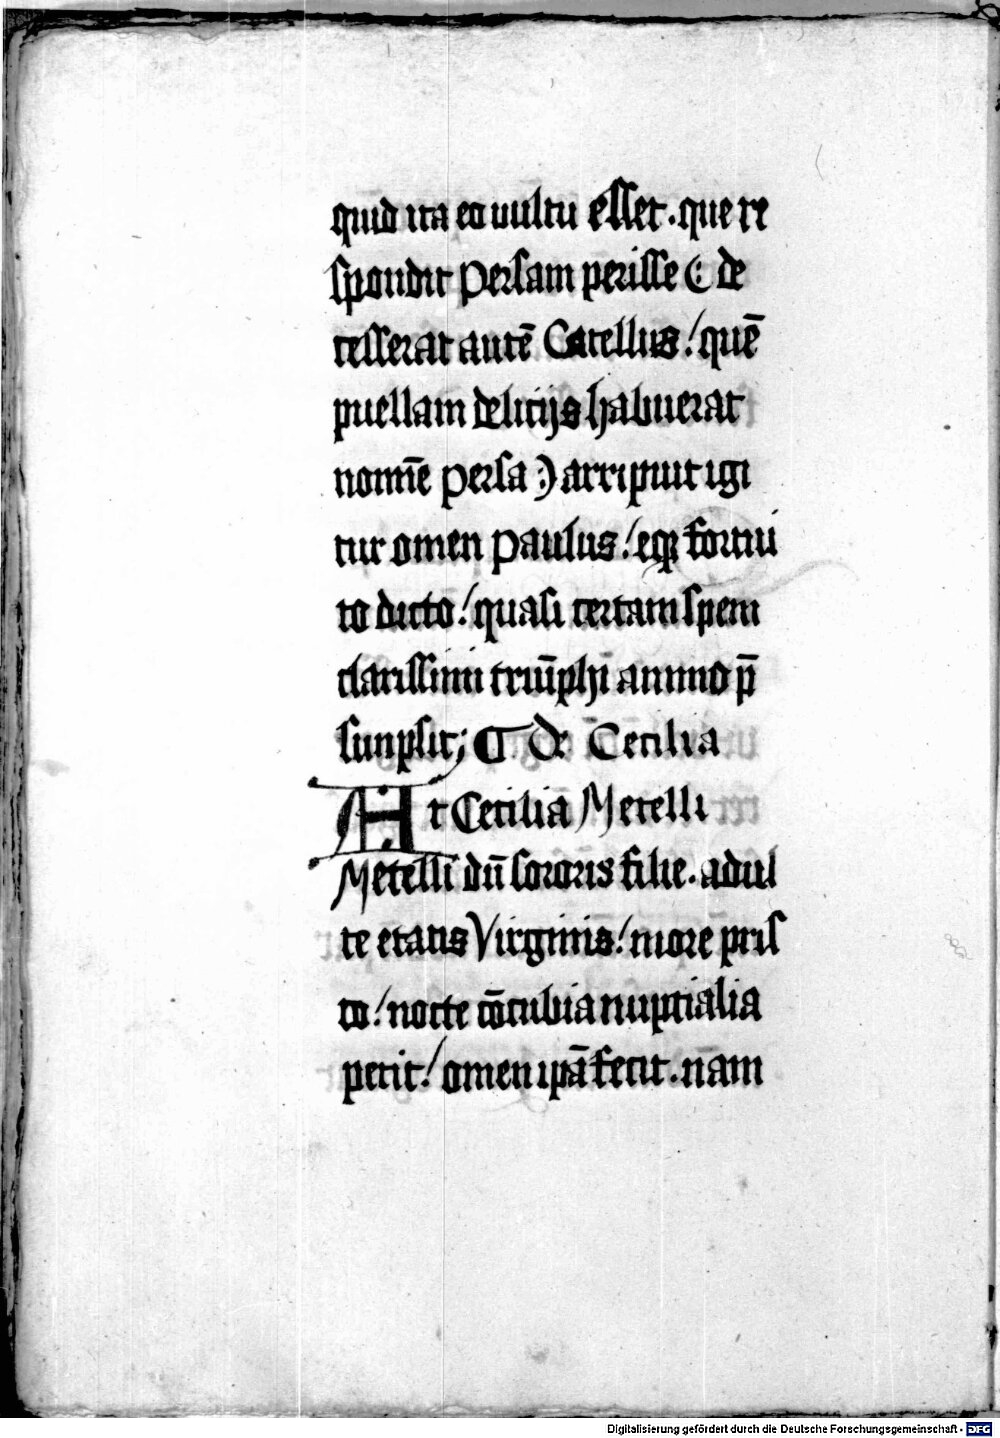 quid ita eo uultu esset. que re
spondit Persam perisse (: de
cesserat autē Catellus! quē
puellam delicijs habuerat
nomīe Persa :) arripuit igi
tur omen Paulus! eqꝫ fortui
to dicto! quasi certam spem
clarissimi triūphi animo p̄
sunpsit; ¶ De Cecilia
At Cecilia Metelli
Metelli dū sororis filie. adul
te etatis Virginis! more pris
co! nocte cōcubia nuptialia
petit! omen ipā fecit. nam
Digitalisierung gefördert durch die Deutsche Forschungsgemeinschaft - DFG